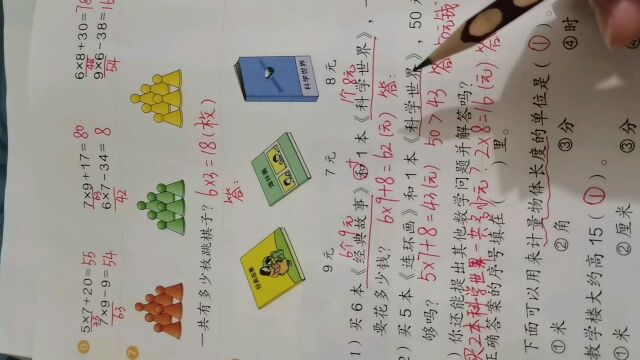 ⑥ 5×7+20=55 7×9+17=80 6×8+30=78
35 63 48
7×9-9=54 6×7-34=8 9×6-38=16
63 42 54
⑦
一共有多少枚跳棋子? 6×3=18(枚)
答:
经典故事 连环画 科学世界
9元 7元 8元
9元 1个8元
1) 买6本《经典故事》和1本《科学世界》,一
要花多少钱? 6×9+8=62(元) 答:
2) 买5本《连环画》和1本《科学世界》,50
够吗? 5×7+8=43(元) 50>43 答
你还能提出其他数学问题并解答吗?
买2本科学世界一共多少元? 2×8=16(元) 答
正确答案的序号填在( )里。
下面可以用来计量物体长度的单位是(①)
①米 ②角 ③分 ④时
教学楼大约高15(①)。
①米 ②厘米 ③分